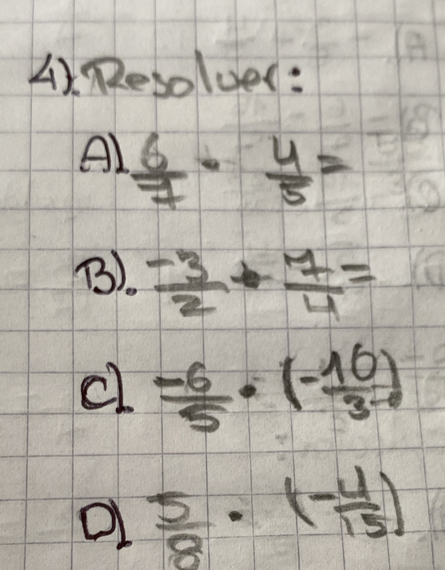 4). Resolver:
A) 6/7 · 4/5 =
B). -3/2 · 7/4 =
C) -6/5 · (-10/3)
D) 5/8 · (-4/15)